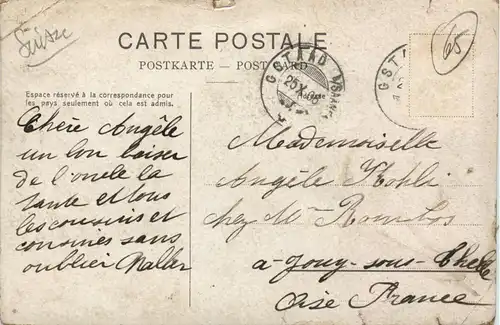 Suisse
CARTE POSTALE
POSTKARTE – POST CARD
65
GSTAAD
(SAANEN)
25.X.05
GSTA
Espace réservé à la correspondance pour
les pays seulement où cela est admis.
Chère Angèle
un bon baiser
de l'oncle la
tante et tous
les cousins et
cousines sans
oublier
Mademoiselle
Angèle Kohli
chez Mr Rombos
a-Jouy-sous-Thelle
Oise France